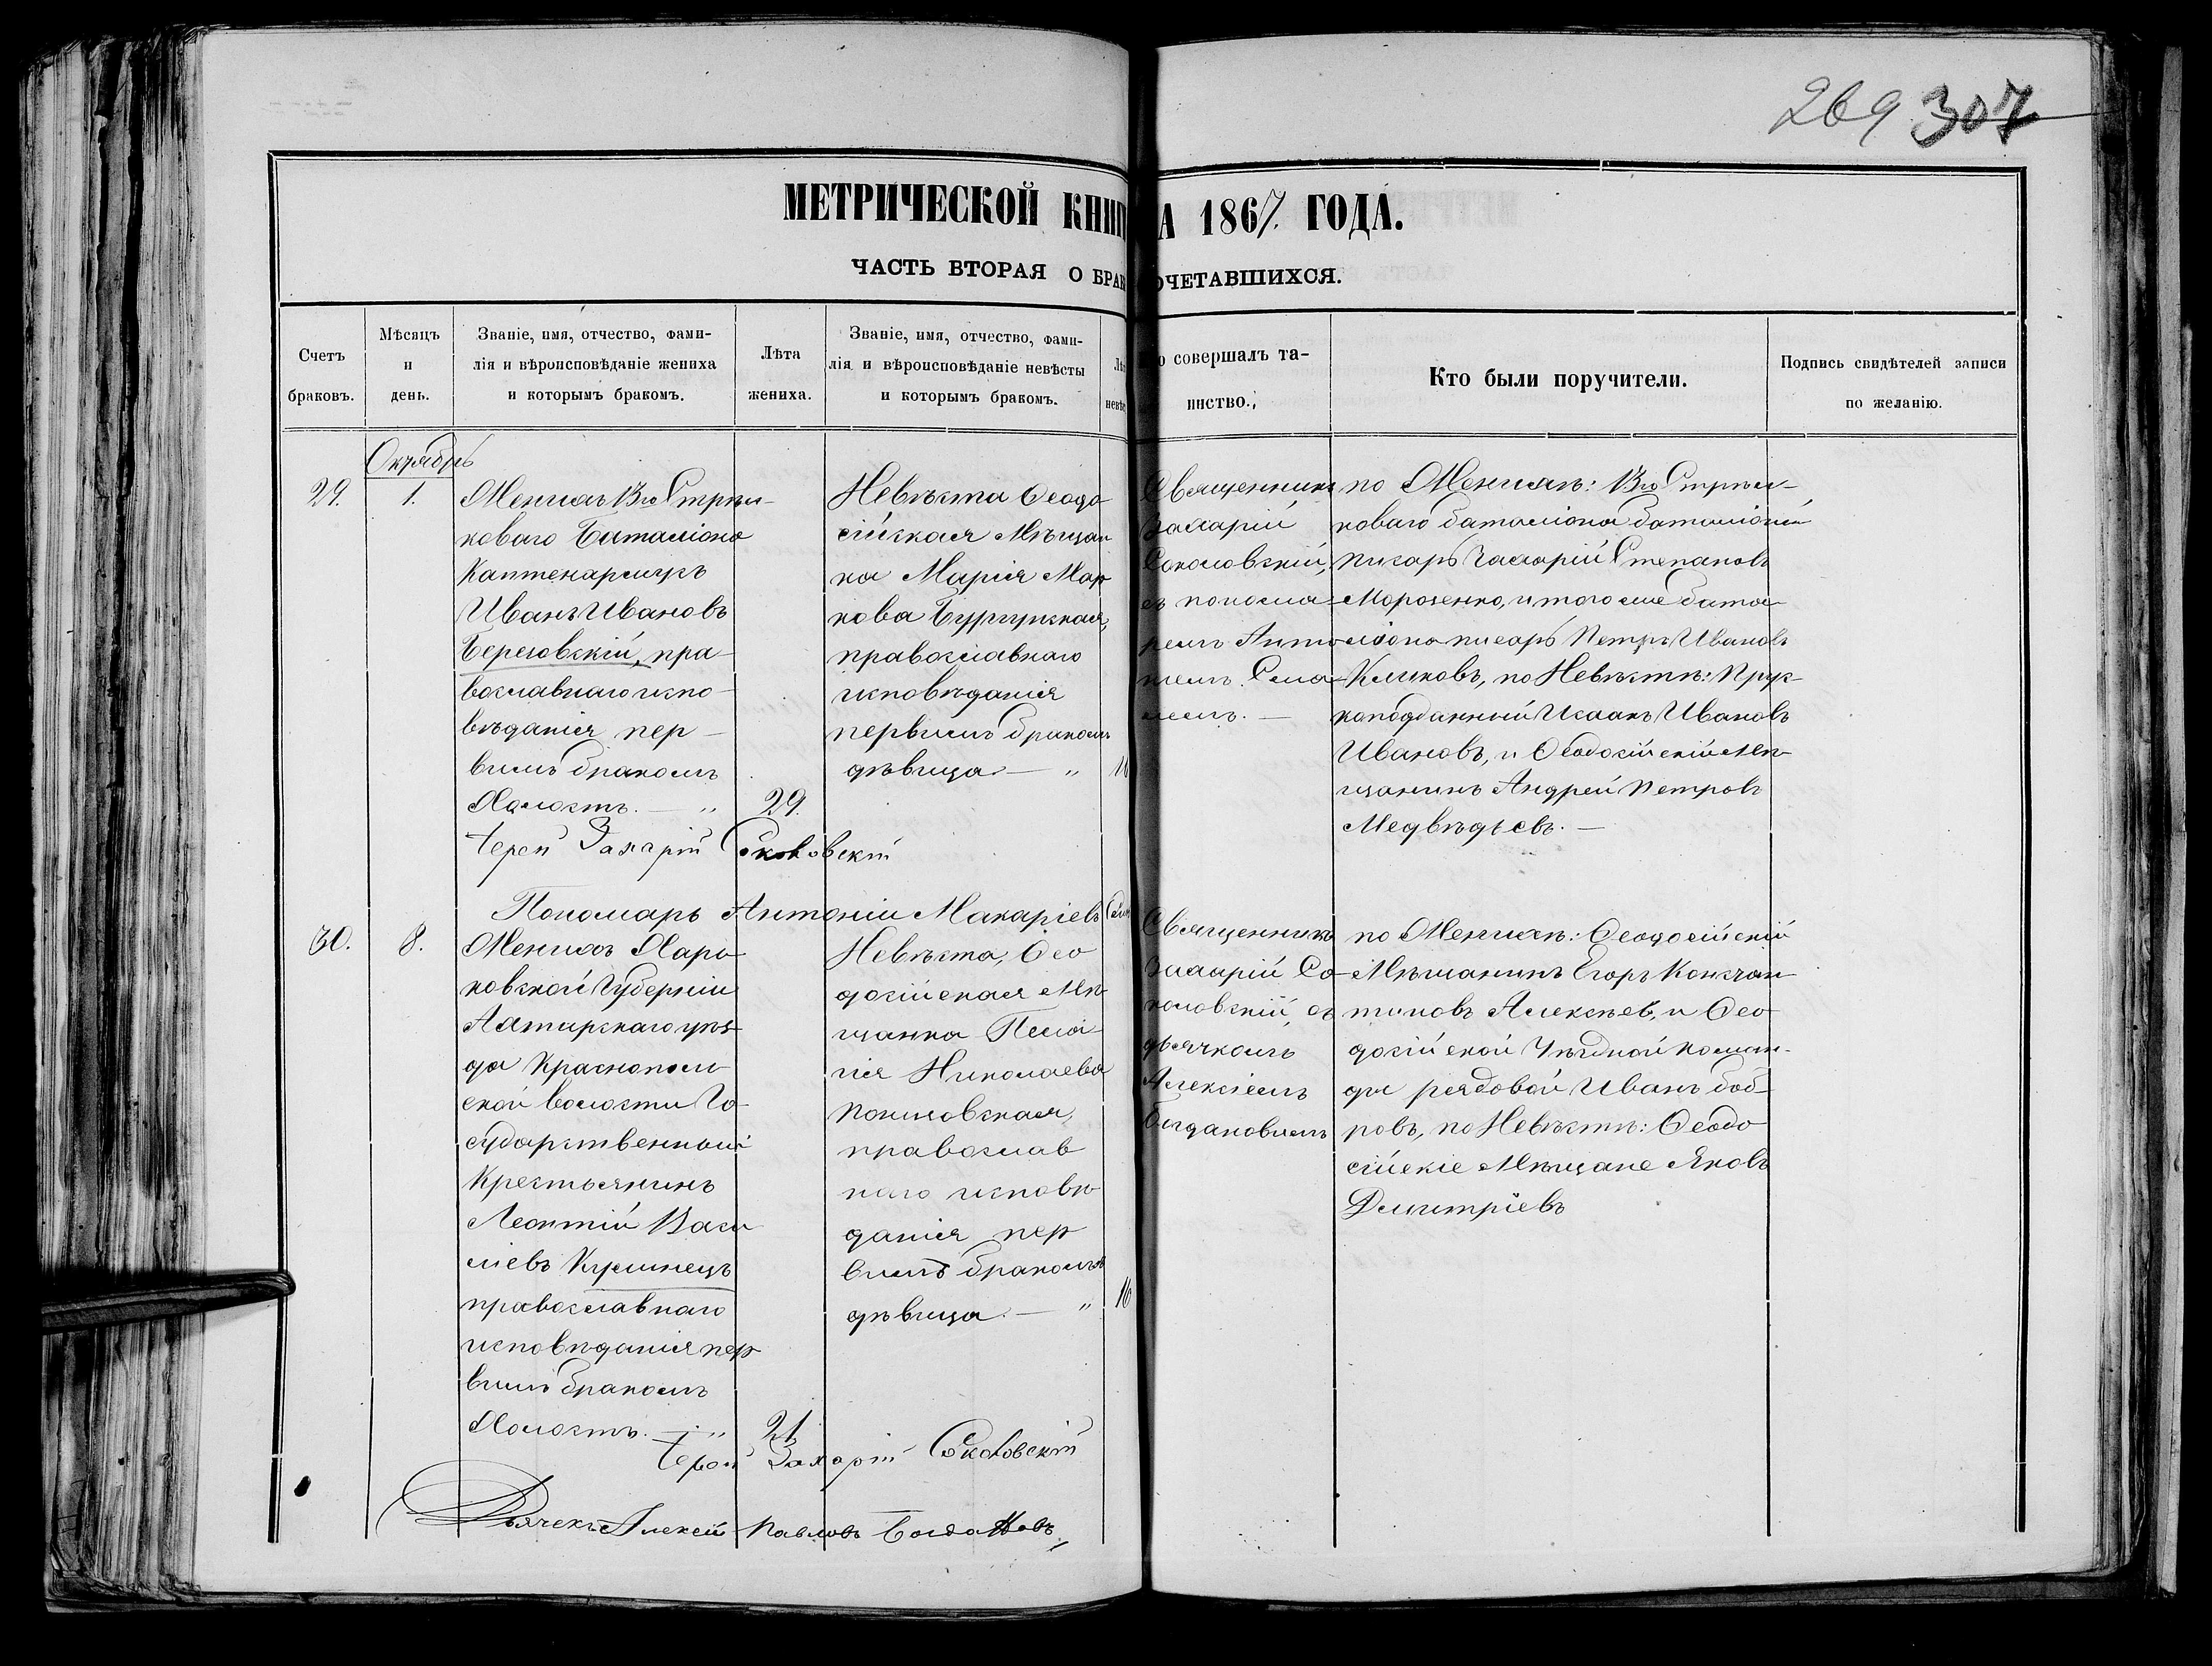 269 307
МЕТРИЧЕСКОЙ КНИГ А 1867. ГОДА.
ЧАСТЬ ВТОРАЯ О БРАК ОЧЕТАВШИХСЯ.
Счетъ
браковъ.
Мѣсяцъ
и
день.
Званіе, имя, отчество, фами-
лія и вѣроисповѣданіе жениха
и которымъ бракомъ.
Лѣта
жениха.
Званіе, имя, отчество, фами-
лія и вѣроисповѣданіе невѣсты
и которымъ бракомъ.
Лѣ
невѣс
о совершалъ та-
инство.
Кто были поручители.
Подпись свидѣтелей записи
по желанію.
Октябрь
29.
1.
Женихъ 13го Стрѣл-
коваго Баталіона
Каптенармусъ
Иванъ Ивановъ
Береговскій, пра-
вославнаго испо-
вѣданія пер-
вымъ бракомъ
Холостъ. — „
29.
Невѣста Ѳеодо
сійская Мѣщан
ка Марія Мар
кова
православнаго
исповѣданія
первымъ бракомъ
дѣвица — „
16
Священникъ
Захарій
Соколовскій,
съ понома-
ремъ Анто-
ніемъ Сема-
—
по Женихѣ: 13го Стрѣл-
коваго баталіона баталіонный
писарь Захарій Степановъ
Морозенко, и того же бата-
ліона писарь Петръ Ивановъ
Климовъ, по Невѣстѣ: Прус-
коподданный Исаакъ Ивановъ
Ивановъ, и Ѳеодосійскій мѣ-
щанинъ Андрей Петровъ
Медвѣдьевъ. —
Іерей Захарій Соколовскій
Пономарь Антоній Макаріевъ
30.
8.
Женихъ Харь-
ковской Губерніи
Ахтырскаго уѣз-
да Краснополь-
ской волости Го-
сударственный
Крестьянинъ
Леонтій Васи
ліевъ Куминецъ
православнаго
исповѣданія пер
вымъ бракомъ
Холостъ. — „
21
Невѣста, Ѳео
досійская Мѣ-
щанка Пела-
гія Николаева
православ
наго исповѣ
данія пер
вымъ бракомъ
дѣвица — „
16
Священникъ
Захарій Со-
коловскій, съ
дьячкомъ
Алексіемъ
Богдановымъ
по Женихѣ: Ѳеодосійскій
Мѣщанинъ Егоръ Констан-
тиновъ Алексѣевъ, и Ѳео
досійской Уѣздной коман-
ды рядовой Иванъ Боб-
ровъ, по Невѣстѣ: Ѳеодо
сійскіе Мѣщане Яковъ
Дмитріевъ
Іерей Захарій Соколовскій
Дьячекъ Алексѣй Павловъ Богдановъ